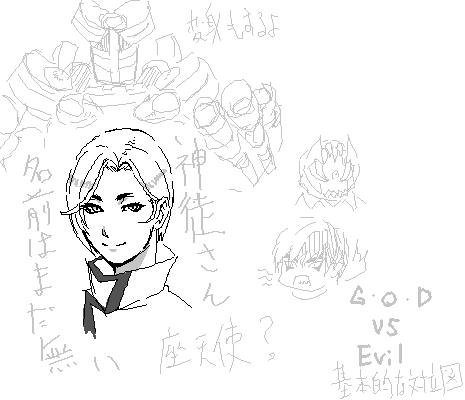 変身もするよ
神徒さん
名前はまだ無い
座天使?
G・O・D
VS
Evil
基本的な対立図